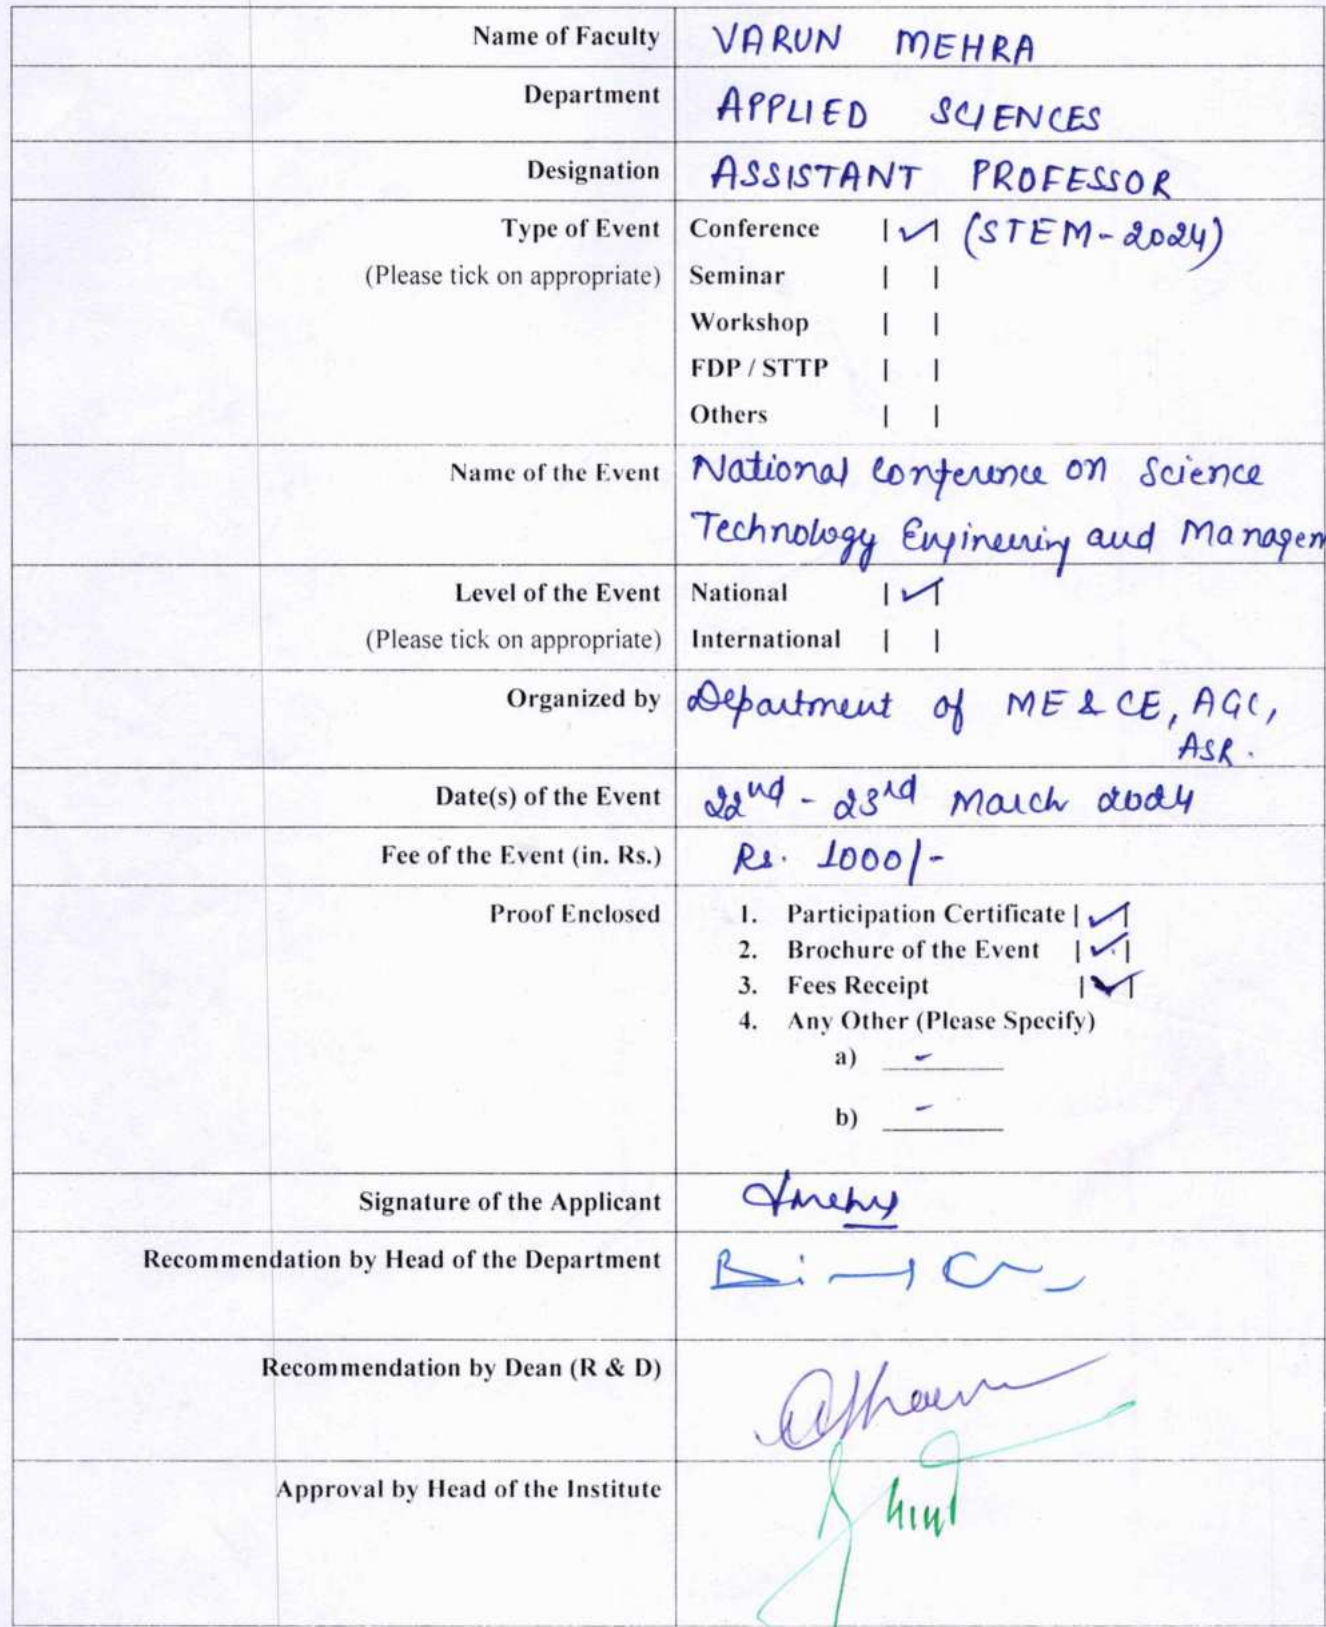 Name of Faculty VARUN MEHRA
Department APPLIED SCIENCES
Designation ASSISTANT PROFESSOR
Type of Event Conference |✓| (STEM-2024)
(Please tick on appropriate) Seminar | |
Workshop | |
FDP / STTP | |
Others | |
Name of the Event National Conference on Science
Technology Engineering and Managem
Level of the Event National |✓|
(Please tick on appropriate) International | |
Organized by Department of ME & CE, AGC,
ASR.
Date(s) of the Event 22nd - 23rd March 2024
Fee of the Event (in. Rs.) Rs. 1000/-
Proof Enclosed 1. Participation Certificate |✓|
2. Brochure of the Event |✓|
3. Fees Receipt |✓|
4. Any Other (Please Specify)
a) -
b) -
Signature of the Applicant
Recommendation by Head of the Department
Recommendation by Dean (R & D)
Approval by Head of the Institute